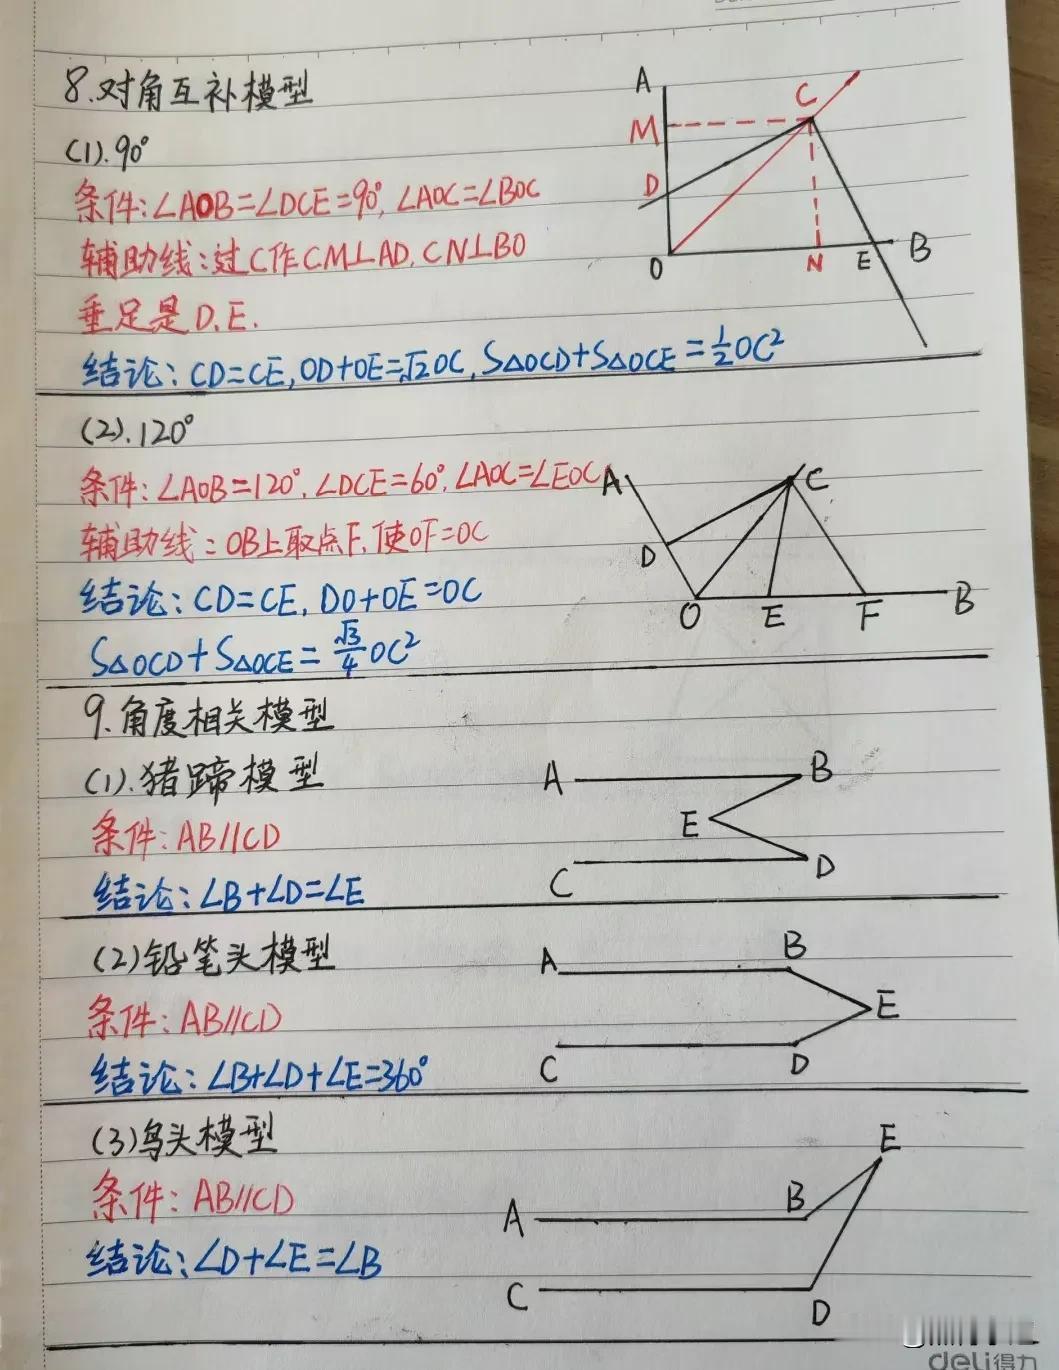 8.对角互补模型
(1).90°
条件:∠AOB=∠DCE=90°,∠AOC=∠BOC
辅助线:过C作CM⊥AD.CN⊥BO
垂足是D.E.
结论:CD=CE,OD+OE=√2OC,S△OCD+S△OCE=1/2OC²
A
M
D
O
C
N
E
B
(2).120°
条件:∠AOB=120°.∠DCE=60°.∠AOC=∠EOC
辅助线:OB上取点F,使OF=OC
结论:CD=CE,DO+OE=OC
S△OCD+S△OCE=√3/4OC²
A
C
D
O
E
F
B
9.角度相关模型
(1).猪蹄模型
条件:AB//CD
结论:∠B+∠D=∠E
A
B
E
C
D
(2)铅笔头模型
条件:AB//CD
结论:∠B+∠D+∠E=360°
A
B
E
C
D
(3)鸟头模型
条件:AB//CD
结论:∠D+∠E=∠B
E
A
B
C
D
deli得力